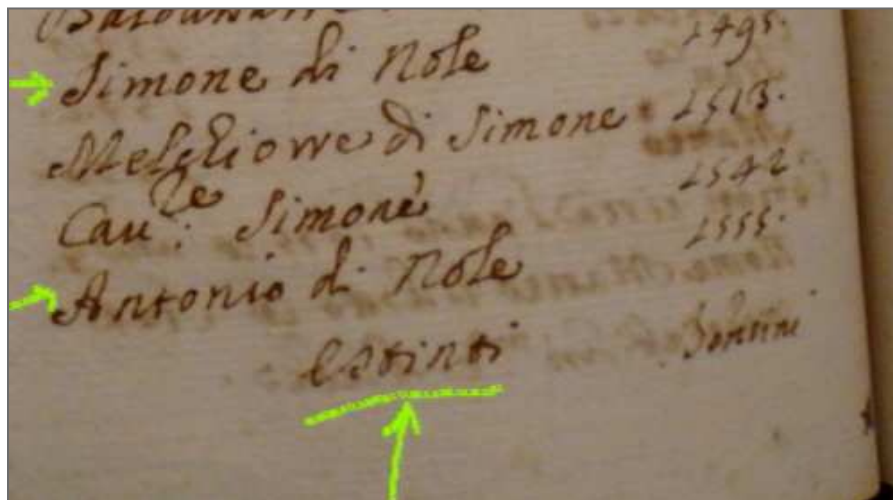 Simone di Nole 1495.
Melchiorre di Simone 1513.
Cau.re Simone 1542.
Antonio di Nole 1555.
estinti